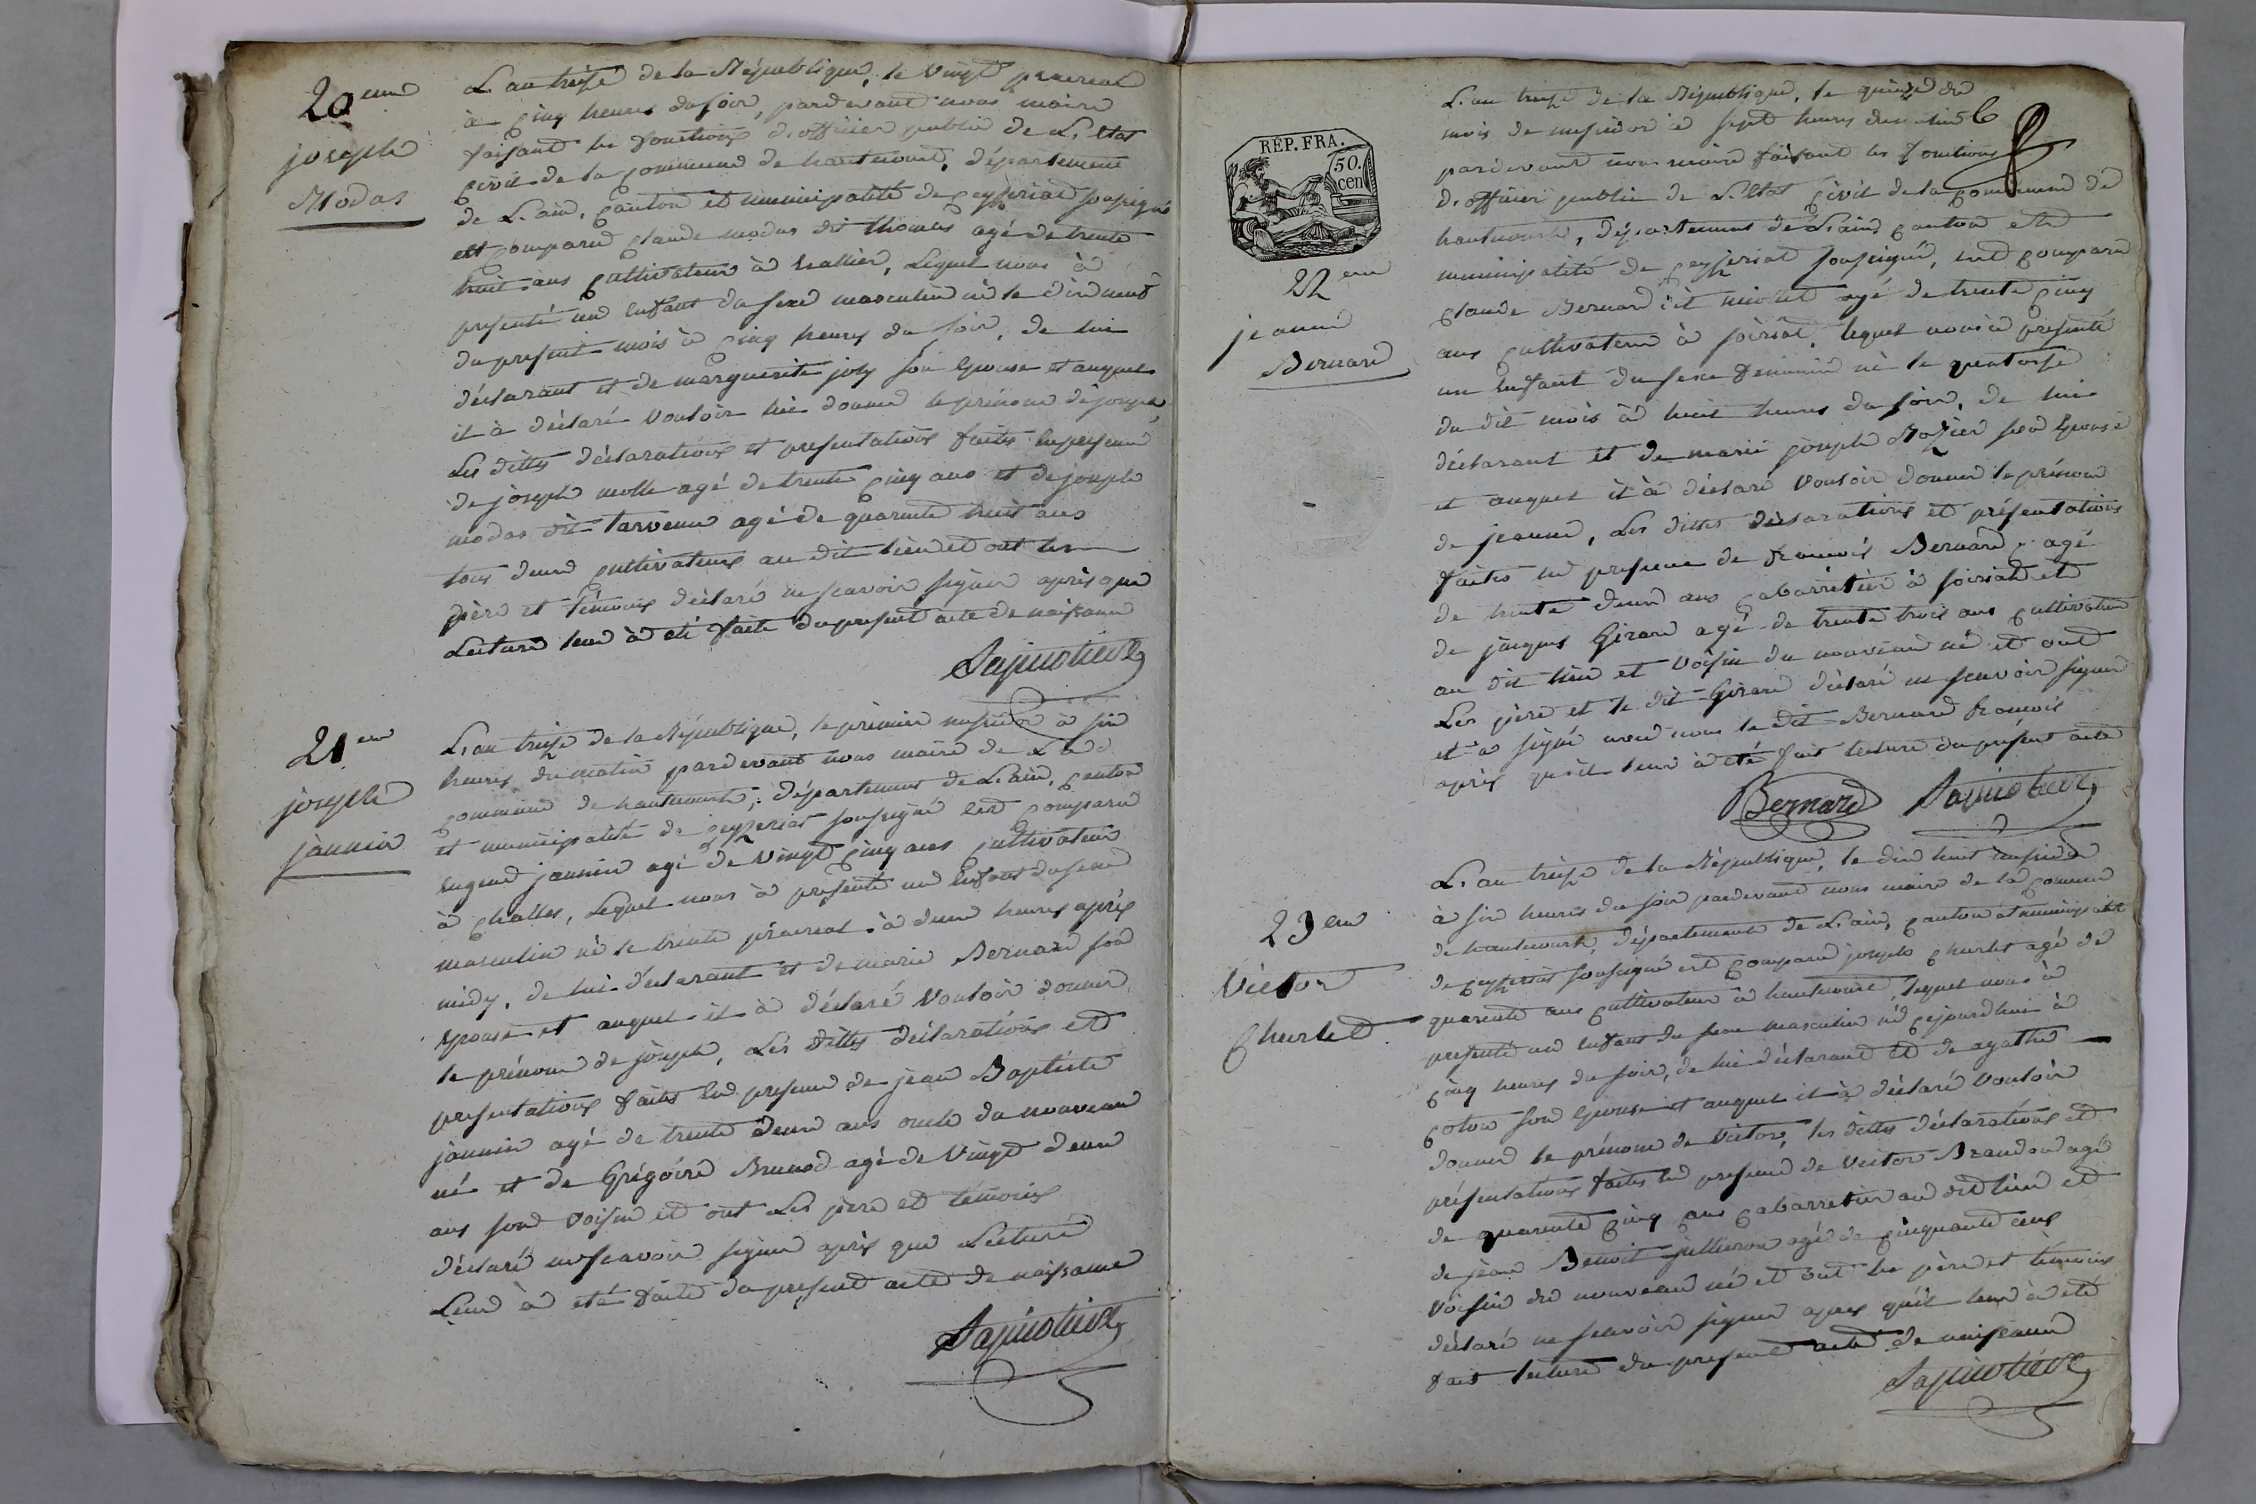 20eme
joseph
Modas
L'an treize de la République, le vingt prairial
à cinq heures du soir, pardevant nous maire
faisant les fonctions d'officier public de L'etat
civil de la commune de hautecourt, département
de L'ain, canton et municipalité de ceyzeriat soussigné
est comparu claude modas dit thomas agé de trente
huit ans cultivateur à hallier, Lequel nous à
presenté un enfant du sexe masculin né le dixneuf
du present mois à cinq heures du soir, de lui
déclarant et de marguerite joly son Epouse et auquel
il à déclaré vouloir lui donner le prénom de joseph,
Les dittes déclarations et presentations faites en presence
de joseph molle agé de trente cinq ans et de joseph
modas dit tarvenne agé de quarante huit ans
tous deux cultivateurs au dit lieu et ont les
père et témoins déclaré ne scavoir signer après que
Lecture leur à eté faite du present acte de naissance
21eme
joseph
jannin
L'an treize de la République, le premier messidor à six
heures du matin pardevant nous maire de La
commune de hautecourt, département de L'ain, canton
et municipalité de ceyzeriat soussigné est comparu
Eugene jannin agé de vingt cinq ans cultivateur
à challes, Lequel nous à presenté un Enfant du sexe
masculin né le trente prairial à deux heures après
midy, de lui déclarant et de marie Bernard son
Epouse et auquel il à déclaré vouloir donner
le prénom de joseph, Les dittes déclarations et
presentations faites en presence de jean Baptiste
jannin agé de trente deux ans oncle du nouveau
né et de Grégoire Brunod agé de vingt deux
ans son voisin et ont Les père et témoins
déclaré ne scavoir signer après que Lecture
Leur à eté faite du present acte de naissance
RÉP. FRA.
50.
cen
22eme
jeanne
Bernard
L'an treize de la République, le quinze du
mois de messidor à sept heures du matin 6
pardevant nous maire faisant les fonctions
d'officier public de L'Etat civil de la commune de
hautecourt, département de L'ain, canton et
municipalité de ceyzeriat soussigné, est comparu
claude Bernard dit agé de trente cinq
ans cultivateur à soiriat, lequel nous à presenté
un Enfant du sexe feminin né le quatorze
du dit mois à huit heures du soir, de lui
déclarant et de marie joseph Rozier son Epouse
et auquel il à déclaré vouloir donner le prénom
de jeanne, Les dittes déclarations et présentations
faites en presence de francois Bernard agé
de trente deux ans cabarretier à soiriat et
de jacques Girard agé de trente trois ans cultivateur
au dit lieu et voisin du nouveau né et ont
Les père et le dit Girard déclaré ne scavoir signer
et à signé avec nous le dit Bernard francois
après qu'il leur à été fait lecture du présent acte
Bernard
23eme
Victor
Churlet
L'an treize de la République, le dix huit messidor
à six heures du soir pardevant nous maire de la commune
de hautecourt, département de L'ain, canton et municipalité
de ceyzeriat soussigné est comparu joseph churlet agé de
quarante ans cultivateur à hautecourt, lequel nous à
presenté un enfant du sexe masculin né cejourdhui à
cinq heures du soir, de lui déclarant et de agathe
coton son Epouse et auquel il à déclaré vouloir
donner le prénom de Victor, les dittes déclarations et
présentations faites en presence de Victor Brandon agé
de quarante cinq ans cabarretier au dit lieu et
de jean Benoit jullieron agé de cinquante ans
voisin du nouveau né et ont les père et témoins
déclaré ne scavoir signer apres qu'il leur à eté
fait lecture du present acte de naissance